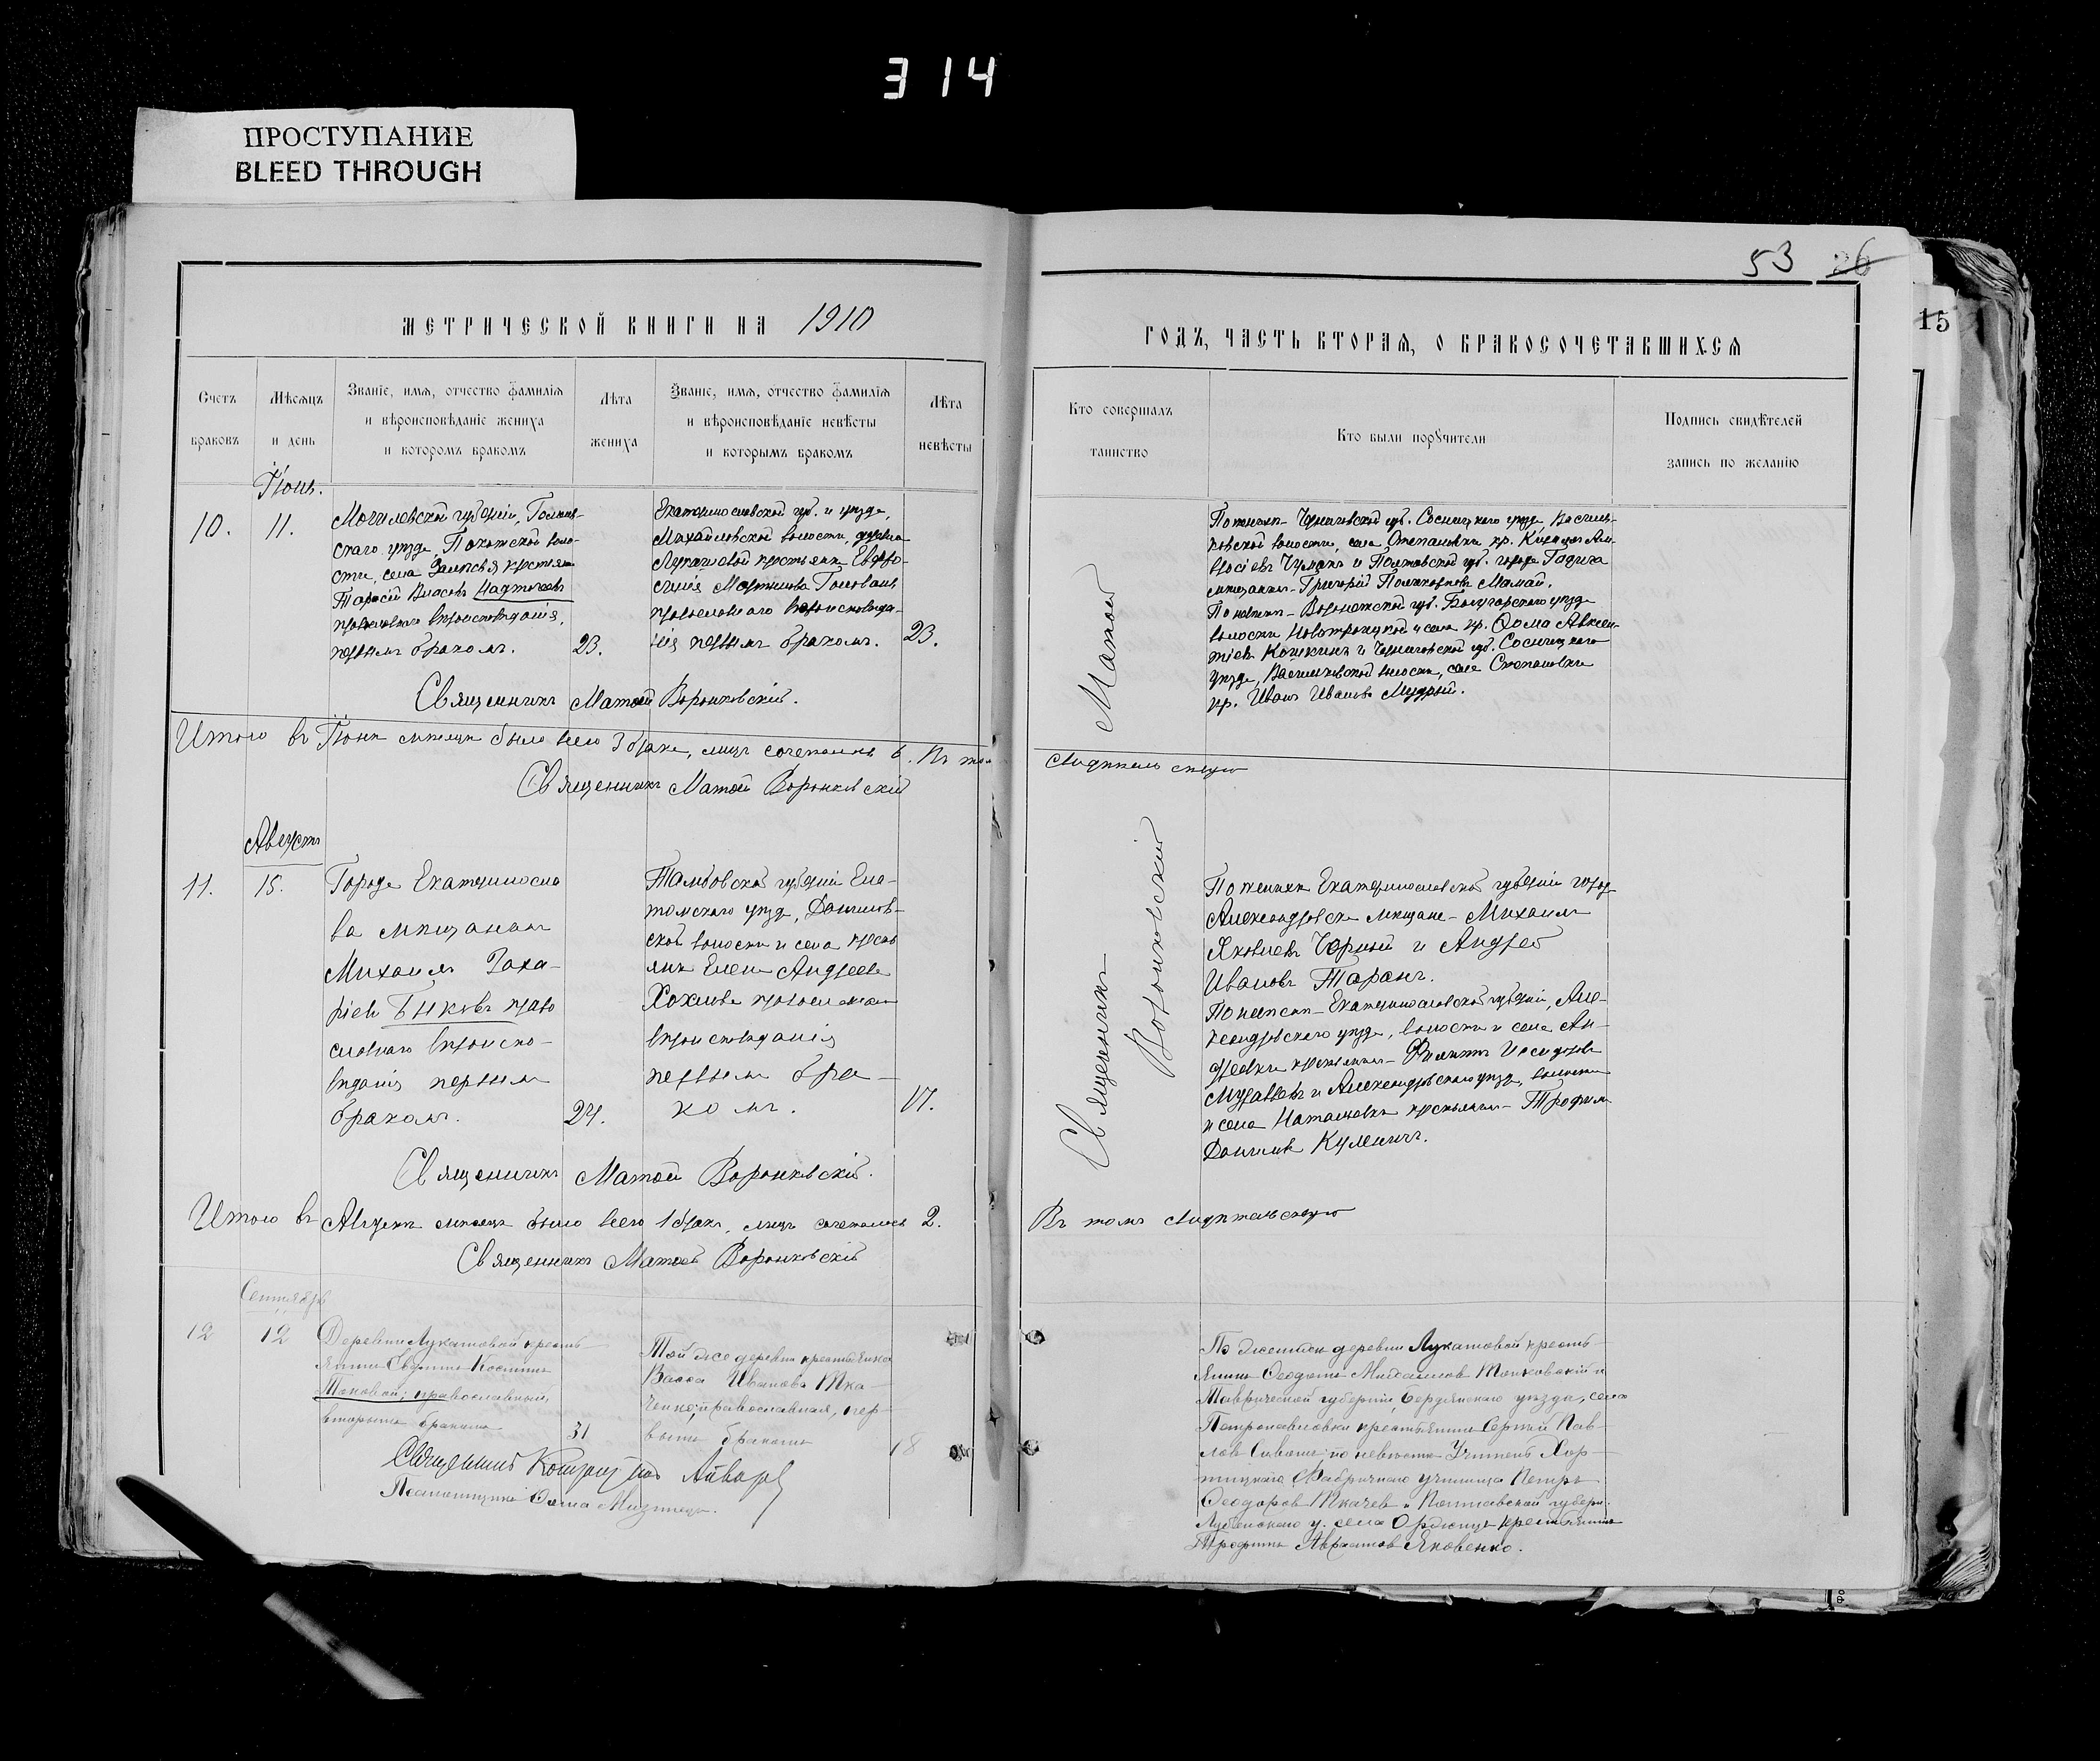 314
ПРОСТУПАНИЕ
BLEED THROUGH
53 26
15
МЕТРИЧЕСКОЙ КНИГИ НА 1910
ГОДЪ, ЧАСТЬ ВТОРАЯ, О БРАКОСОЧЕТАВШИХСЯ
Счетъ браковъ
Мѣсяцъ и день
Званіе, имя, отчество фамилія
и вѣроисповѣданіе жениха
и которомъ бракомъ
Лѣта жениха
Званіе, имя, отчество фамилія
и вѣроисповѣданіе невѣсты
и которымъ бракомъ
Лѣта невѣсты
Кто совершалъ
таинство
Кто были поручители
Подпись свидѣтелей
запись по желанію
10.
11.
Могилевской губерніи,
скаго уѣзда, воло-
сти, села крестьян
Тарасій Власовъ
православнаго вѣроисповѣданія,
первымъ бракомъ.
23.
Екатеринославской губ. и уѣзда,
Михайловской волости, деревни
Лукашевой крестьянка Евфро-
синія Мартинова
православнаго вѣроисповѣда-
нія первымъ бракомъ.
23.
Священникъ Матѳей Воронковскій.
По женихѣ Черниговской губ. Сосницкаго уѣзда,
волости, села Степановки кр.
Чумакъ и Полтавской губ. города Гадяча
мѣщанинъ Григорій Мамай.
По невѣстѣ Воронежской губ. уѣзда
волости Новотроицкой и села кр. Ѳома
Кошкинъ и Черниговской губ. Сосницкаго
уѣзда, волости, села Степановки
кр. Иванъ Ивановъ Мудрый.
Итого въ Іюнѣ мѣсяцѣ было всего 3 брака, лицъ сочеталось 6. Въ томъ
свидѣтельствую
Священникъ Матѳей Воронковскій
Августъ
11.
15.
Города Екатериносла
ва мѣщанинъ
Михаилъ Заха-
ріевъ Быковъ право
славнаго вѣроиспо-
вѣданія первымъ
бракомъ.
24.
Тамбовской губерніи Ела-
томскаго уѣзда,
ской волости и села кресть
янка Елена Андреева
Хохлова православнаго
вѣроисповѣданія
первымъ бра-
комъ.
17.
Священникъ Матѳей Воронковскій.
Священникъ Матѳей Воронковскій
По женихѣ Екатеринославской губерніи города
Александровска мѣщане - Михаилъ
Яковлевъ Чорный и Андрей
Ивановъ Таранъ.
По невѣстѣ - Екатеринославской губерніи, Але-
ксандровскаго уѣзда, волости и села Ан-
дреевки крестьянинъ - Филиппъ Исидоровъ
Муравьевъ и Александровскаго уѣзда, волости
и села Наталіевки крестьянинъ - Трофимъ
Куленичъ.
Итого въ Августѣ мѣсяцѣ было всего 1 бракъ, лицъ сочеталось 2.
Въ томъ свидѣтельствую
Священникъ Матѳей Воронковскій
Сентябрь
12
12
Деревни Лукашовой кресть-
янинъ Костинъ
Токовой, православный,
вторымъ бракомъ
31
Той же деревни крестьянка
Васса Иванова Тка-
ченко, православная, пер-
вымъ бракомъ
18
Священникъ
Псаломщикъ
По женихѣ деревни Лукашовой кресть-
янинъ Ѳеодотъ Михаиловъ и
Таврической губерніи, Бердянскаго уѣзда, села
Петропавловки крестьянинъ Сергѣй Пав-
ловъ; по невѣстѣ Учитель Хор-
тицкаго Фабричнаго училища Петръ
Ѳеодоровъ Ткачевъ и Полтавской губерн.
Лубенскаго у. села Оржицы крестьянинъ
Трофимъ Яковенко.